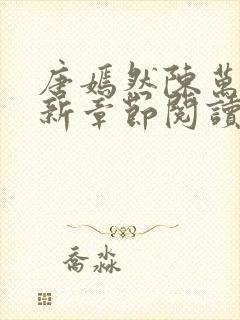 唐嫣然陳萬
新章節閱讀
喬淼